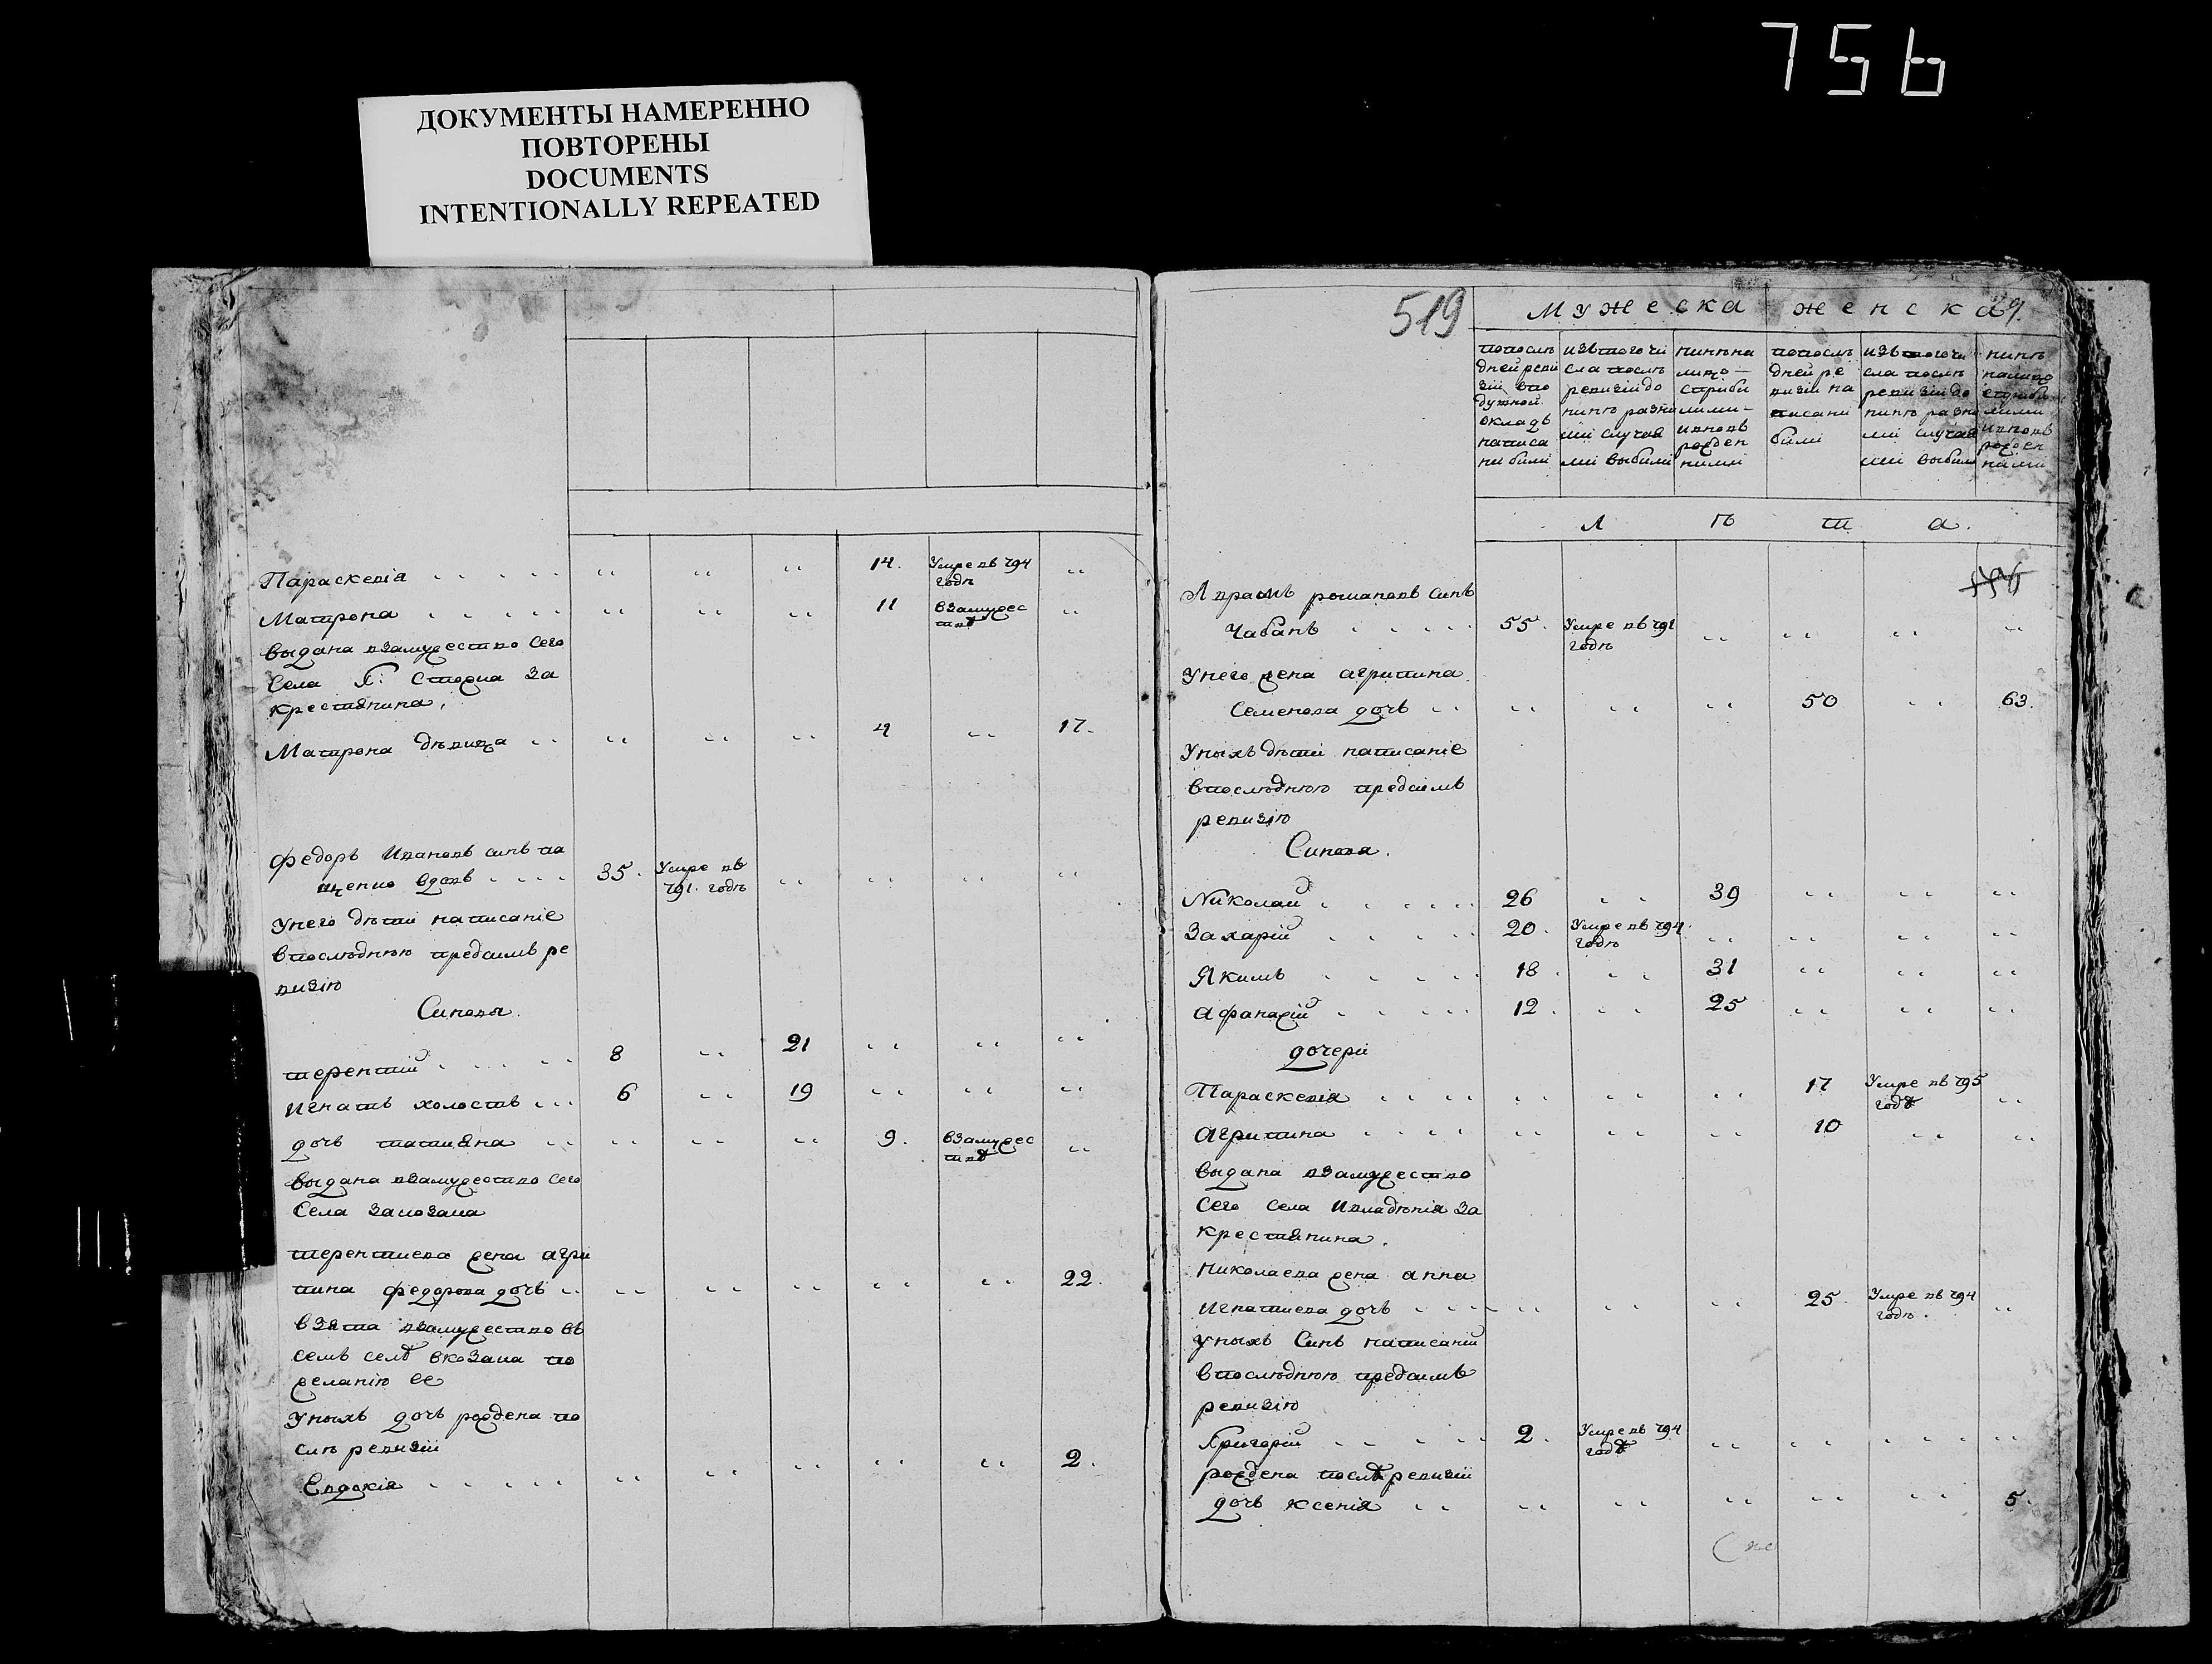 756
ДОКУМЕНТЫ НАМЕРЕННО
ПОВТОРЕНЫ
DOCUMENTS
INTENTIONALLY REPEATED
Параскевія 14. Умре въ 794
годѣ
Матрона 11 взамужес
твѣ
выдана взамужество сего
села за
крестянина.
Матрона дѣвица 4 17.
Федоръ Ивановъ синъ по
щенко вдовъ 35. Умре въ
791. годѣ
Унего дѣти написаніе
впослюднюю предсимъ ре
визію
Синовя.
терентій 8 21
игнатъ холостъ 6 19
дочь татияна 9. взамужес
твѣ
выдана взамужество сего
села закозака
терентиева жена агри
пина федорова дочь 22.
взята взамужество въ
семъ селѣ вкозака по
желанію ее
Унихъ дочь рождена по
слѣ ревизіи
Евдокія 2.
519
Мужеска женска
попослѣ
дней реви
зіи впо
душной
окладъ
написа
ни били
изътого чи
сла послѣ
ревизіи до
нинѣ разни
ми случая
ми выбили
нинѣ на
лицо
сприби
лими
ивновь
рожден
ними
попослѣ
дней ре
визіи на
писани
били
изътого чи
сла послѣ
ревизіи до
нинѣ разни
ми случая
ми выбили
нинѣ
налицо
сприби
лими
ивновь
рожден
ними
Л ѣ т а.
Аврамъ романовъ синъ
Чабанъ 55. Умре въ 791
годѣ
Унего жена агрипина
Семенова дочь 50 63.
Унихъ дѣти написаніе
впослюднюю предсимъ
ревизію
Синовя.
Николай 26 39
Захарій 20. Умре въ 794
годѣ
Якимъ 18. 31
Афанасій 12. 25
дочери
Параскевія 17 Умре въ 795
годѣ
Агрипина 10
выдана взамужество
сего села ивладѣнія за
крестянина.
Николаева жена анна
игнатиева дочь 25. Умре въ 794
годѣ.
унихъ Синъ написаній
впослюднюю предсимъ
ревизію
Григорій 2. Умре въ 794
годѣ
рождена послѣ ревизіи
дочь ксенія 5.